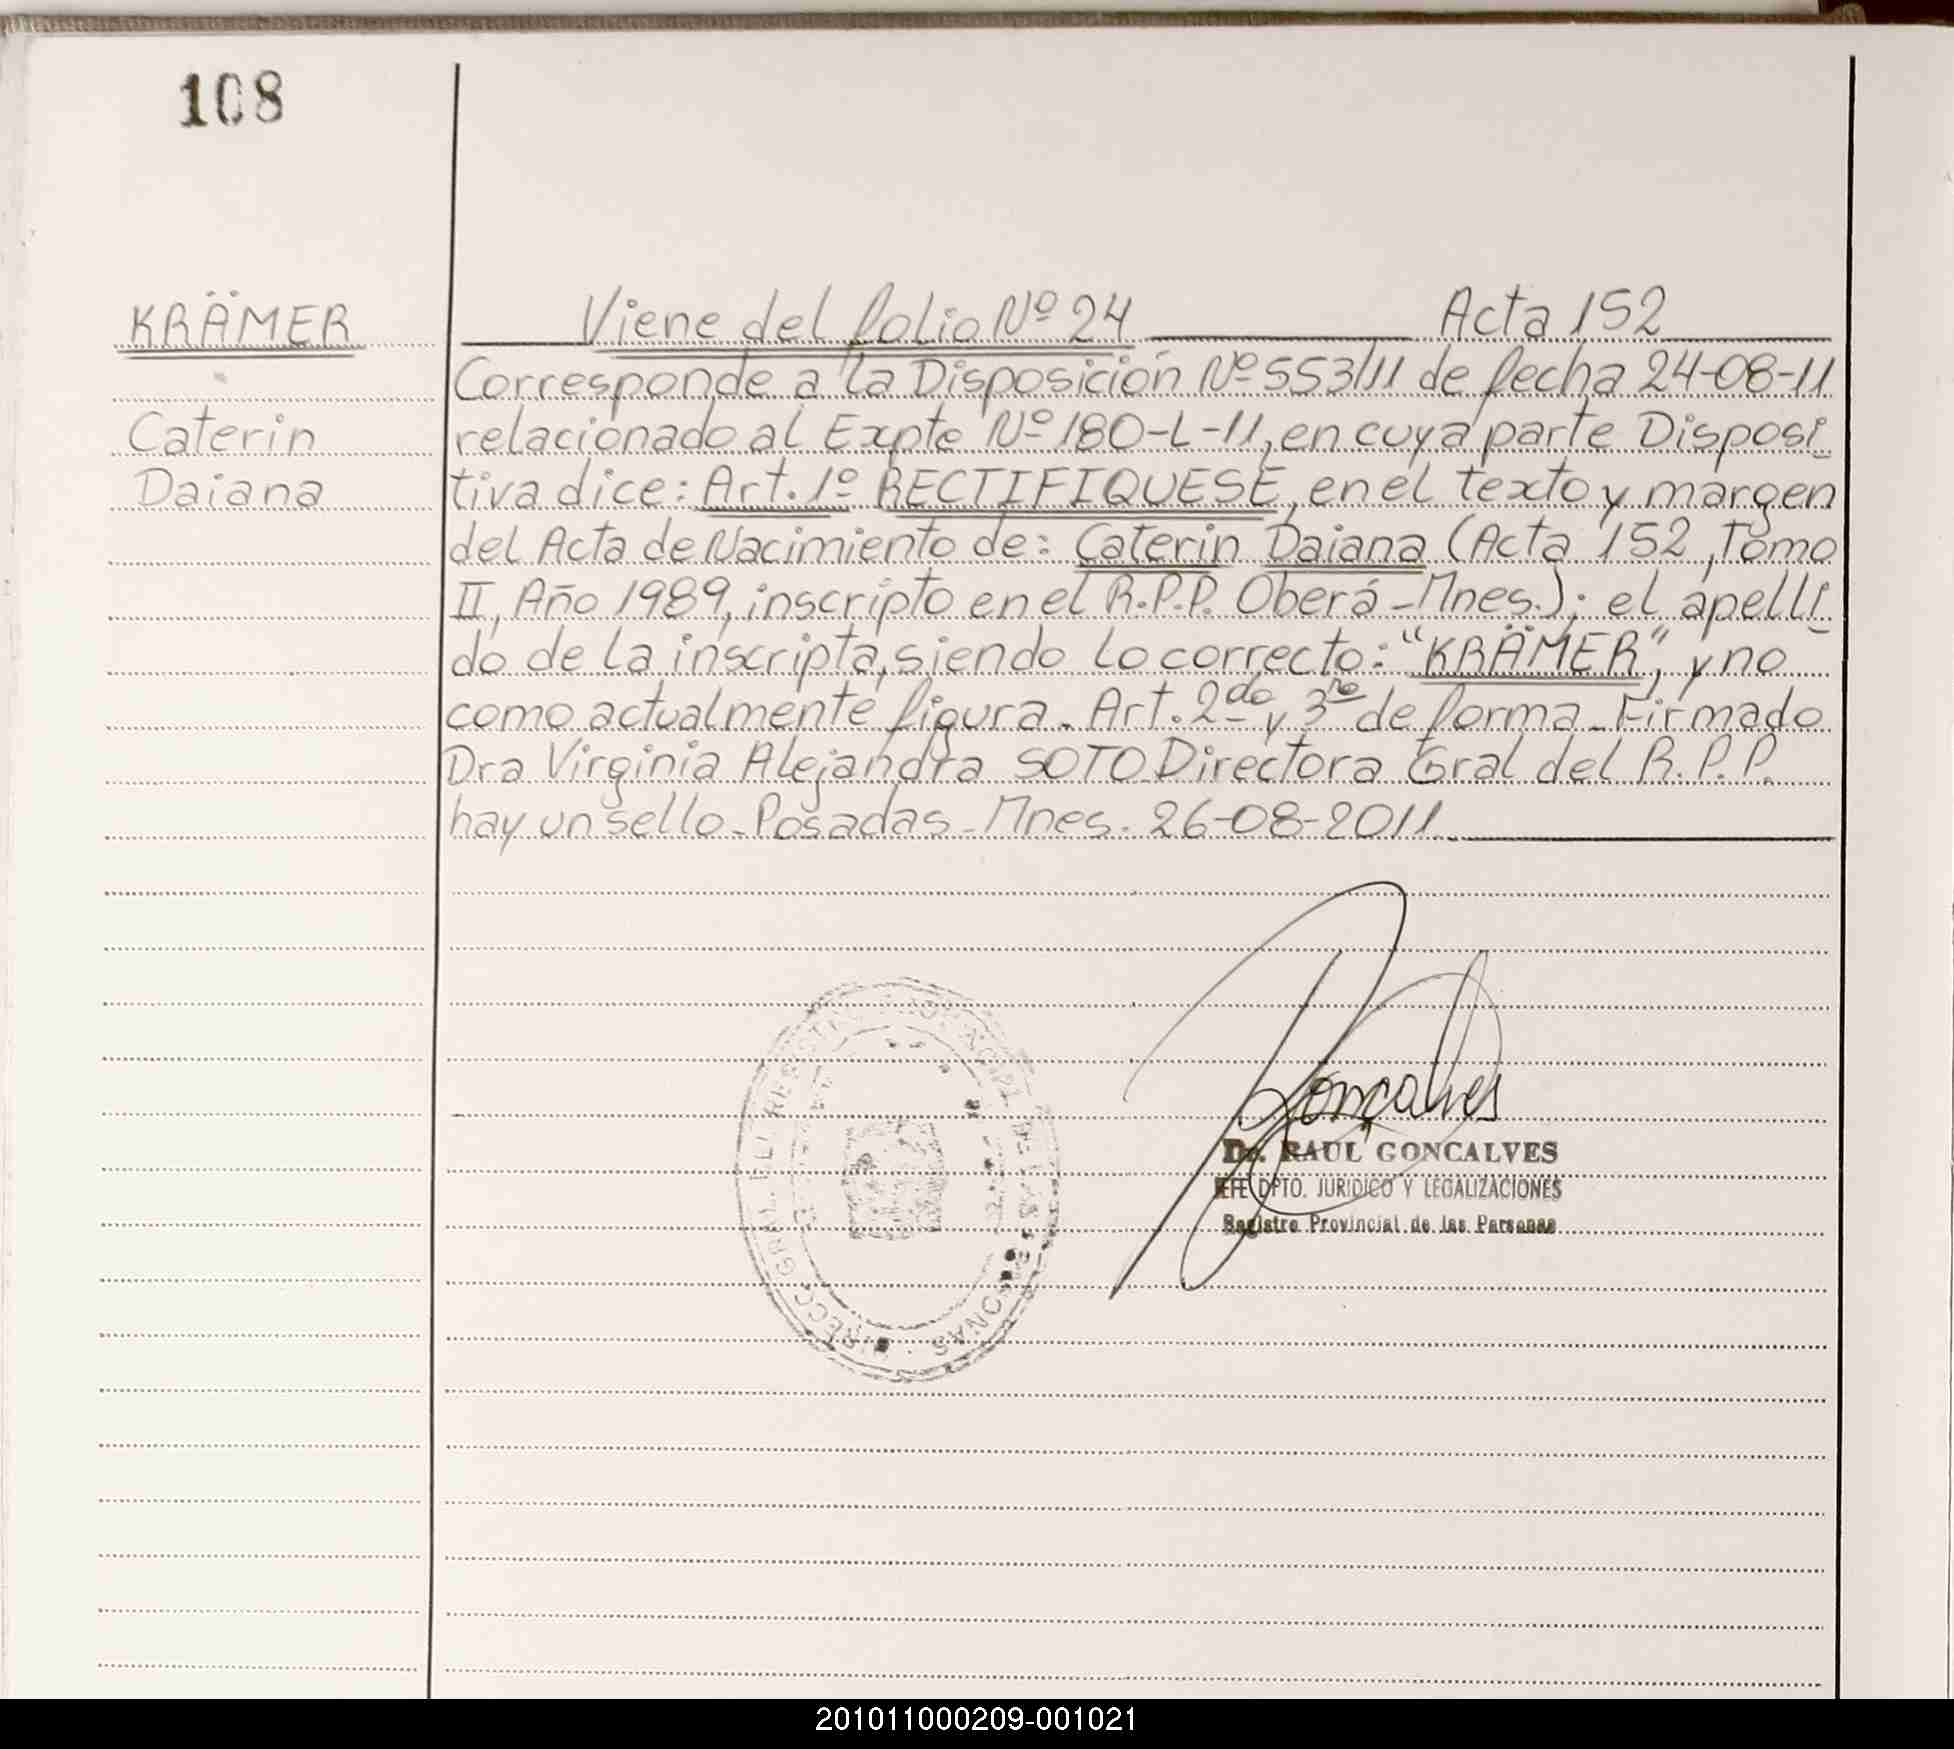 108
KRÄMER
Caterin
Daiana
Viene del folio Nº 24 Acta 152
Corresponde a la Disposición Nº 553/11 de fecha 24-08-11
relacionado al Expte Nº 180-L-11, en cuya parte Disposi-
tiva dice: Art. 1º RECTIFIQUESE, en el texto y margen
del Acta de Nacimiento de: Caterin Daiana (Acta 152, Tomo
II, Año 1989, inscripto en el R.P.P. Oberá - Mnes.); el apelli-
do de la inscripta, siendo lo correcto: "KRÄMER", y no
como actualmente figura. Art. 2do y 3ro de forma - Firmado
Dra Virginia Alejandra SOTO Directora Gral del R.P.P.
hay un sello - Posadas - Mnes. 26-08-2011
DIRECC. GRAL. DEL REGISTRO PROVINCIAL DE LAS PERSONAS
Gonçalves
Dr. RAUL GONCALVES
JEFE DPTO. JURIDICO Y LEGALIZACIONES
Registro Provincial de las Personas
201011000209-001021